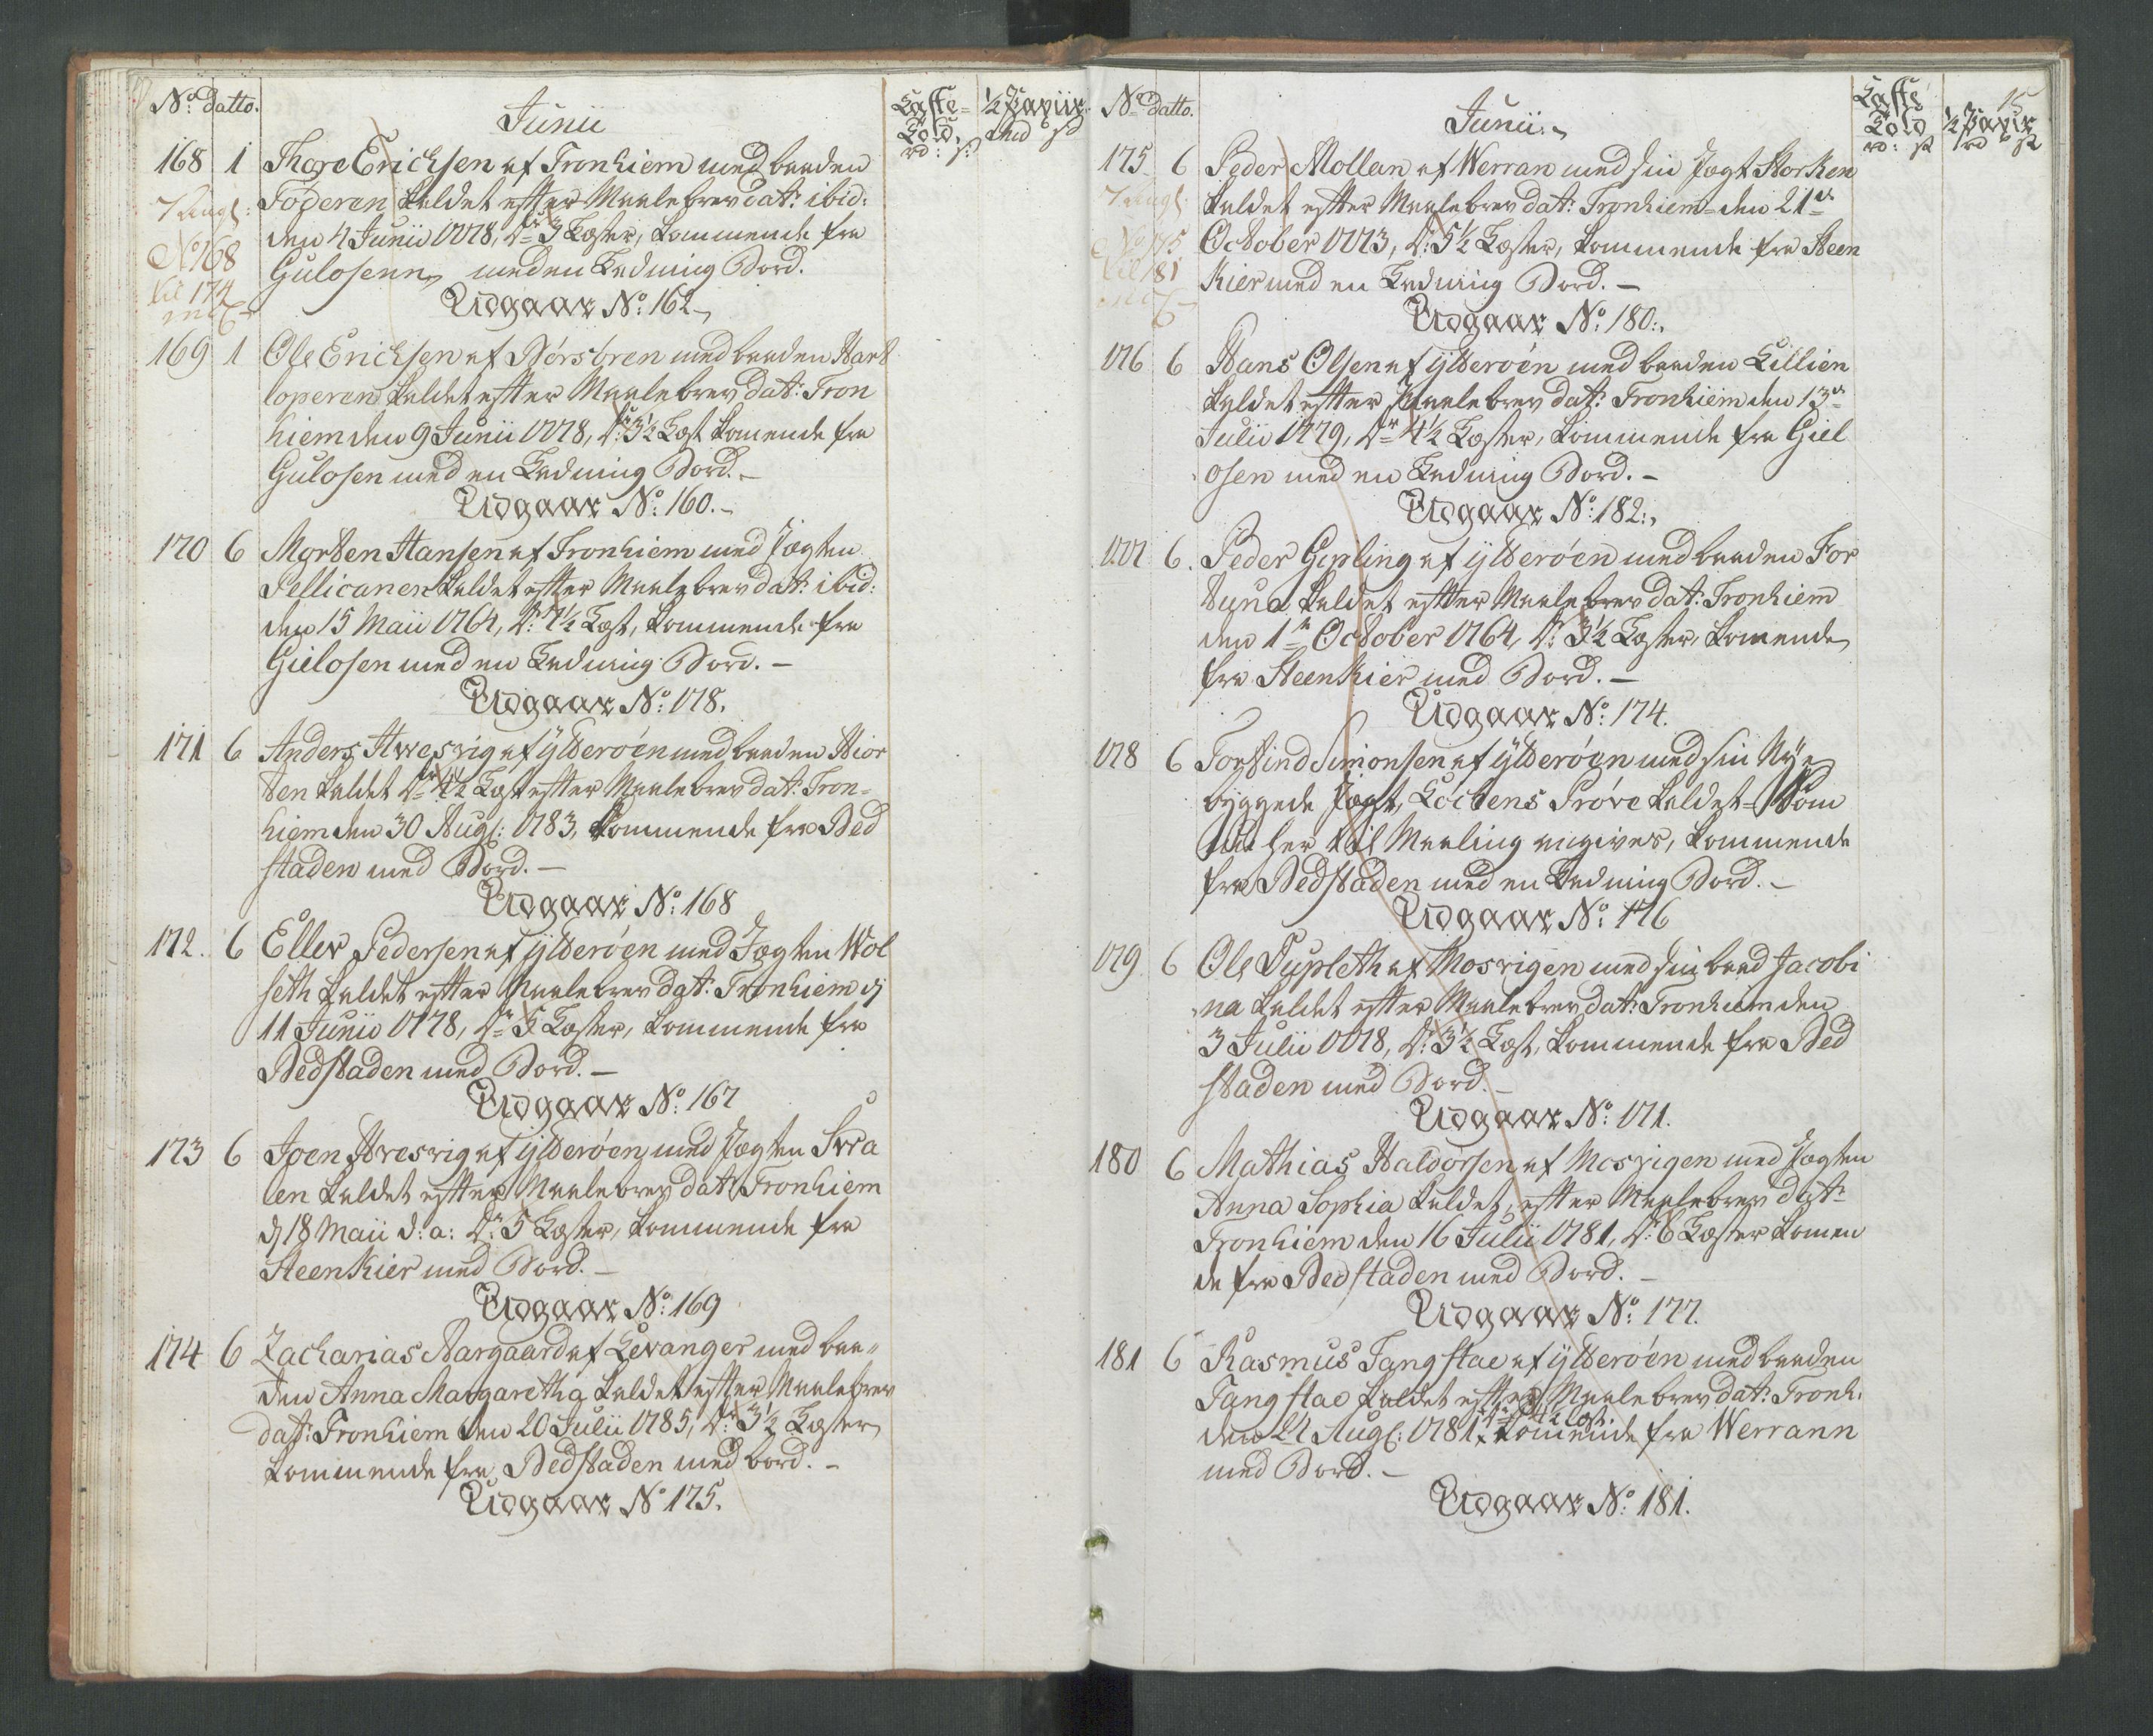 No datto.
Junii
Læste=
Told
½ Papiir
rd: s:
168 1 Thore Erichsen af Tronhiem med baaden
Foderen kaldet efter Maalebrev dat: ibid:
7 Angl:
den 4 Junii 1778, Dr 3 Læster, kommende fra
No 168
Gulosenn, med en Ladning Bord.
til 174
incl
Udgaar No: 162
169 1 Ole Erichsen af Børsøren med baaden Hart
loperen kaldet efter Maalebrev dat: Tron
hiem den 9 Junii 1778, Dr: 3½ Læst komende fra
Gulosen med en Ladning Bord.
Udgaar No: 160.
170 6 Morten Hansen af Tronhiem med Jægten
Pellicanen kaldet efter Maalebrev dat: ibid:
den 15 Maii 1764, Dr: 7½ Læst, kommende fra
Gielosen med en Ladning Bord.
Udgaar No: 178.
171 6 Anders Hwesvig af ÿtterøen med baaden Hior
ten kaldet Dr 4½ Læst efter Maalebrev dat: Tron=
hiem den 30 Aug: 1783, kommende fra Bed
staden med Bord.
Udgaar No: 168
172. 6 Eller Pedersen af ÿtterøen med Jægten Wol
seth kaldet efter Maalebrev dat: Tronhiem dj
11 Junii 1778, Dr 5 Læster, kommende fra
Bedstaden med Bord.
Udgaar No: 167
173 6 Joen Hvesvig af ÿtterøen med Jægten Sva
len kaldet efter Maalebrev dat: Tronhiem
dj 18 Maii d: a: Dr: 5 Læster, kommende fra
Steenkier med Bord.
Udgaar No: 169
174 6 Zacharias Aargaard af Levanger med baa=
den Anna Margaretha kaldet efter Maalebrev
dat: Tronhiem den 20 Julii 1785, Dr: 3½ Læster,
kommende fra Bedstaden med bord.
Udgaar No 175.
No datto.
Junii
Læste
Told
rd: s
15
½ Papir
rd s
175 6 Peder Mollan af Werran med sin Jægt Storken
7 Angl:
kaldet efter Maalebrev dat: Tronhiem den 21de
No 175
October 1773, Dr: 5½ Læster, kommende fra Steen
til 181
kier med en Ladning Bord.
incl
Udgaar No: 180:
176 6 Hans Olsen af ÿtterøen med baaden Lillien
kaldet efter Maalebrev dat: Tronhiem den 13de
Julii 1779, Dr 4½ Læster, kommende fra Giel
osen med en Ladning Bord.
Udgaar No: 182:
177 6. Peder Gipling af ÿtterøen med baaden For
tuna kaldet efter Maalebrev dat: Tronhiem
den 1te October 1764, Dr: 3½ Læster, komende
fra Steenkier med Bord.
Udgaar No: 174.
178 6 Torkind Simonsen af ÿtterøen med sin Nÿe
byggede Jægt, Lochens Prøve kaldet Som
her til Maaling angives, kommende
fra Bedstaden med en Ladning Bord.
Udgaar No: 176
179 6 Ole Dupleth af Mosvigen med sin baad Jacobi
na kaldet efter Maalebrev dat: Tronhiem den
3 Julii 1778, Dr: 3½ Læst, kommende fra Bed
staden med Bord.
Udgaar No: 171.
180 6 Mathias Haldorsen af Mosvigen med Jægten
Anna Sophia kaldet, efter Maalebrev dat:
Tronhiem den 16 Julii 1781, Dr: 6 Læster komen
de fra Bedstaden med Bord.
Udgaar No: 177.
181 6 Rasmus Tangstad af ÿtterøen med baaden
Tangstad kaldet efter Maalebrev dat: Tronh:
Dr 4½ Læst.
den 21 Aug: 1781, komende fra Werrann
med Bord.
Udgaar No: 181.